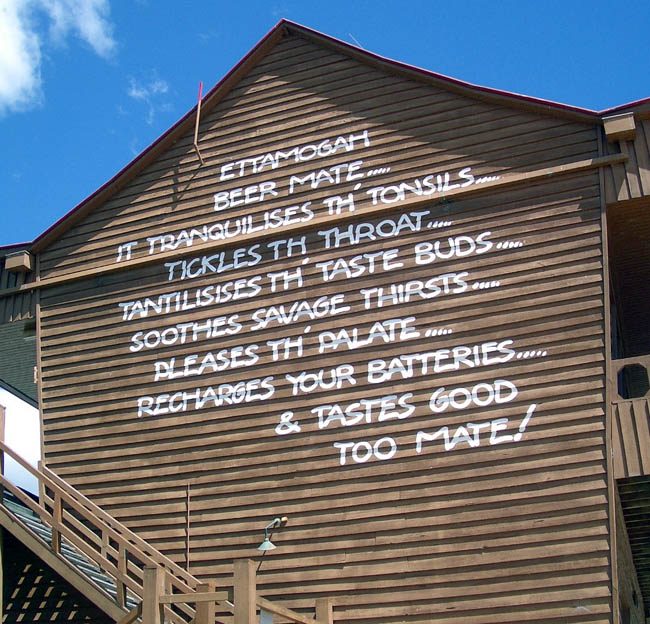 ETTAMOGAH
BEER MATE.....
IT TRANQUILISES TH' TONSILS.....
TICKLES TH THROAT.....
TANTILISISES TH' TASTE BUDS.....
SOOTHES SAVAGE THIRSTS.....
PLEASES TH' PALATE.....
RECHARGES YOUR BATTERIES.....
& TASTES GOOD
TOO MATE!